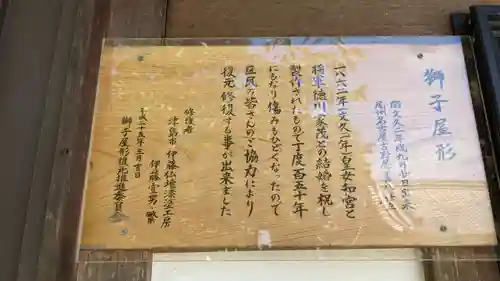 獅子屋形
一八六二年(文久二年)皇女和宮と
将軍徳川家茂との結婚を祝し
製作されたもので丁度百五十年
にもなり傷みもひどくなったので
区民の皆さんのご協力により
復元修復する事が出来ました
修復者
津島市 伊藤仏壇漆塗工房
伊藤宣男・繁
平成二十五年三月吉日
獅子屋形復元推進委員会